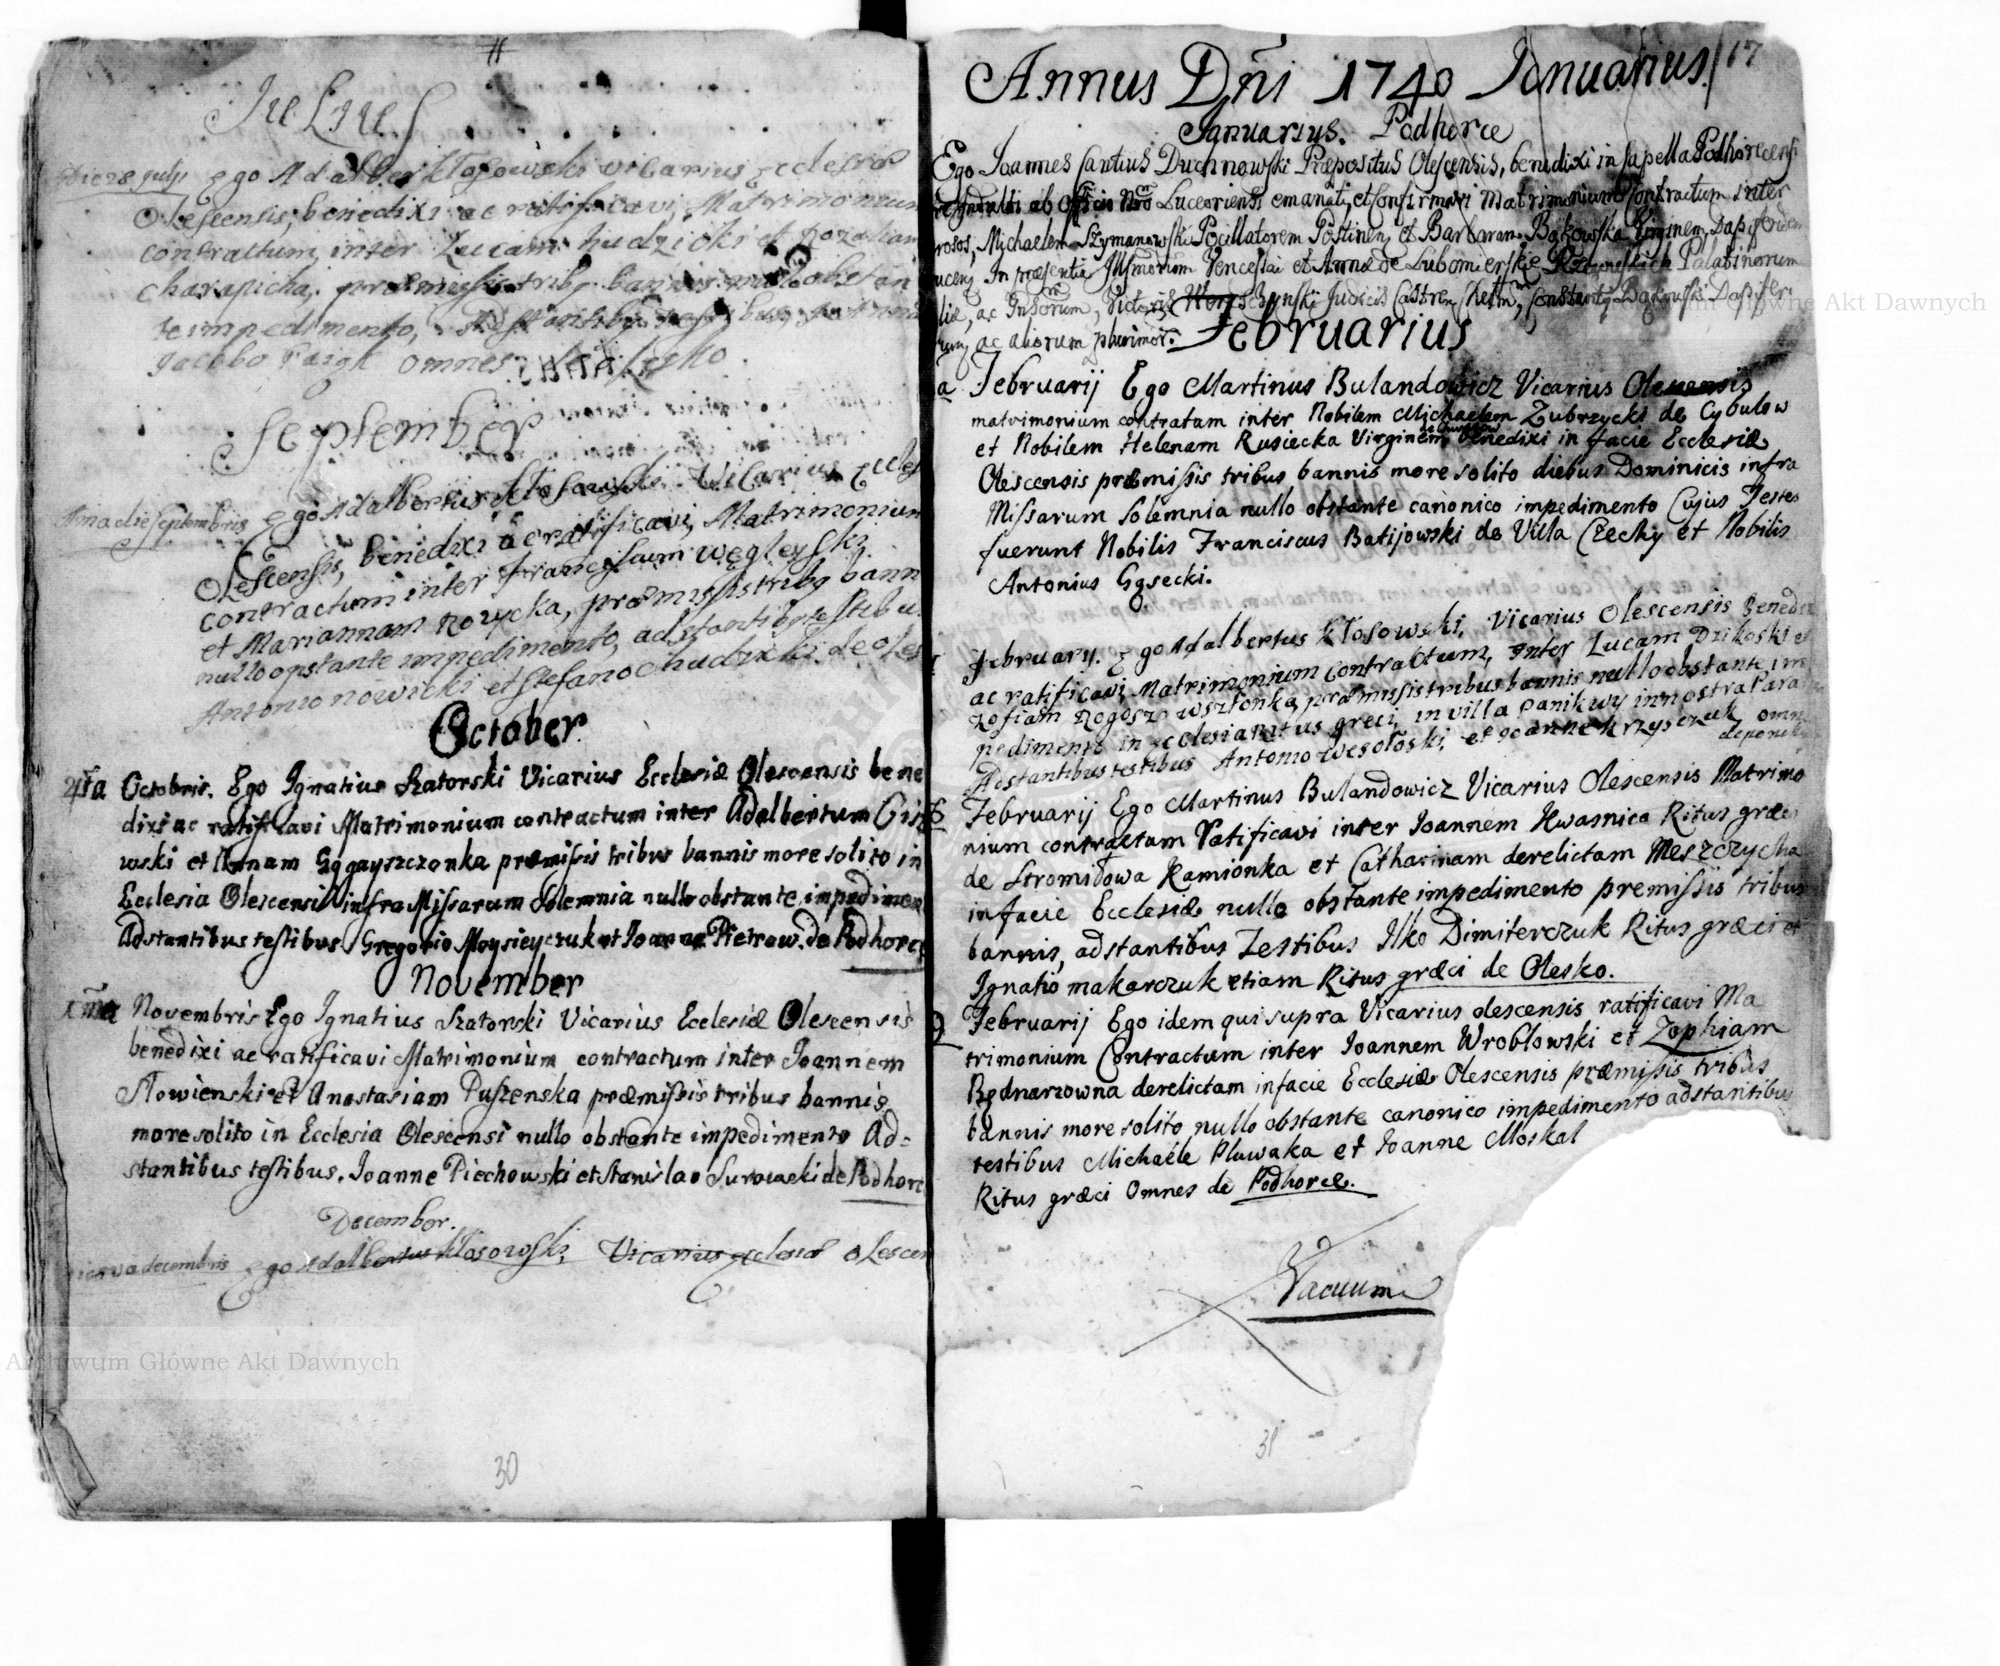 Julius
Die 28 July Ego Adalber Kłosowski vicarius Ecclesiæ
Olescensis, benedixi ac ratificavi, Matrimonium
contractum, inter Lucam hudzicki et Rozaliam
charapicha, præmissis trib9 bannis nullo obstan
te impedimento,
Jacobo Faigk omnes de olesko.
September
ma die septembris Ego Adalbertus Kłosowski Vicarius Eccles
Olescensis, benedixi ac ratificavi, Matrimonium
contractum inter franciscum węgleyski
et Mariannam Rozycka, præmissis trib9 bann
nullo opstante impedimento, adstantib9 testibu
Antonio nowicki et stefano chudzicki de oles
October
4ta Octobris. Ego Ignatius Szatorski Vicarius Ecclesiæ Olescensis bene
dixi ac ratificavi Matrimonium contractum inter Adalbertum Cis
wski et Annam Gągayszczonka præmissis tribus bannis more solito in
Ecclesia Olescensi infra Missarum Solemnia nullo obstante impedimen
Adstantibus testibus Gregorio Moysieyczuk et Joanne Pietrow. de Podhorc
November
1ma Novembris Ego Ignatius Szatorski Vicarius Ecclesiæ Olescensis
benedixi ac ratificavi Matrimonium contractum inter Joannem
Słowienski et Anastasiam Puszenska præmissis tribus bannis
more solito in Ecclesia Olescensi nullo obstante impedimento Ad=
stantibus testibus. Joanne Piechowski et Stanislao Surowaeki de Podhorc
December.
decembris Ego Adalbertus Kłosowski, Vicarius Ecclesiæ olescen
30
Annus Dñi 1740 Januarius. 17
Januarius. Podhorce
Ego Joannes Cantius Duchnowski Præpositus Olescensis, benedixi in Capella Podhorecensi
ab Officio Luceoriensi emanati, et Confirmavi Matrimonium Contractum inter
rosos, Michaelem Szymanowski Pocillatorem et Barbaram Bąkowska
In præsentia Venceslai et Annæ de Lubomierskie Rzewuskich Palatinorum
liæ, ac Judicis Castren, Constanty Bąkowski Dapiferi
ac aliorum plurimor.
Februarius
a Februarij Ego Martinus Bulandowicz Vicarius Olescensis
matrimonium contratum inter Nobilem Michaelem Zubrzycki de Cybulow
et Nobilem Helenam Rusiecka Virginem benedixi in facie Ecclesiæ
Olescensis præmissis tribus bannis more solito diebus Dominicis infra
Missarum Solemnia nullo obstante canonico impedimento Cujus Testes
fuerunt Nobilis Franciscus Batijowski de Villa Czechy et Nobilis
Antonius Gąsecki.
February. Ego Adalbertus Kłosowski, Vicarius Olescensis Benedix
ac ratificavi, Matrimonium contractum, Inter Lucam Dzikoski et
Zofiam Rogoszowszłonka, præmissis tribus bannis nullo obstante im
pedimento in Ecclesia Ritus greci, in villa Panikwy in nostra Para
Adstantibus testibus Antonio Wesołoski, et Joanne krzysczuk omn
de poniky
6 Februarij Ego Martinus Bulandowicz Vicarius Olescensis Matrimo
nium contractum Ratificavi inter Joannem Kwasnica Ritus græci
de Stromidowa Kamionka et Catharinam derelictam Meszczycha
in facie Ecclesiæ nullo obstante impedimento premissis tribus
bannis, adstantibus Testibus Ilko Dimiterczuk Ritus græci et
Ignatio makarczuk etiam Ritus græci de Olesko.
9 Februarij Ego idem qui supra Vicarius olescensis ratificavi Ma
trimonium Contractum inter Joannem Wroblowski et Zophiam
Będnarzowna derelictam in facie Ecclesiæ Olescensis præmissis tribus
bannis more solito nullo obstante canonico impedimento adstantibus
testibus Michaéle Pluwaka et Joanne Moskal
Ritus græci Omnes de Podhorce.
Vacuum
31
Archiwum Główne Akt Dawnych
Główne Akt Dawnych